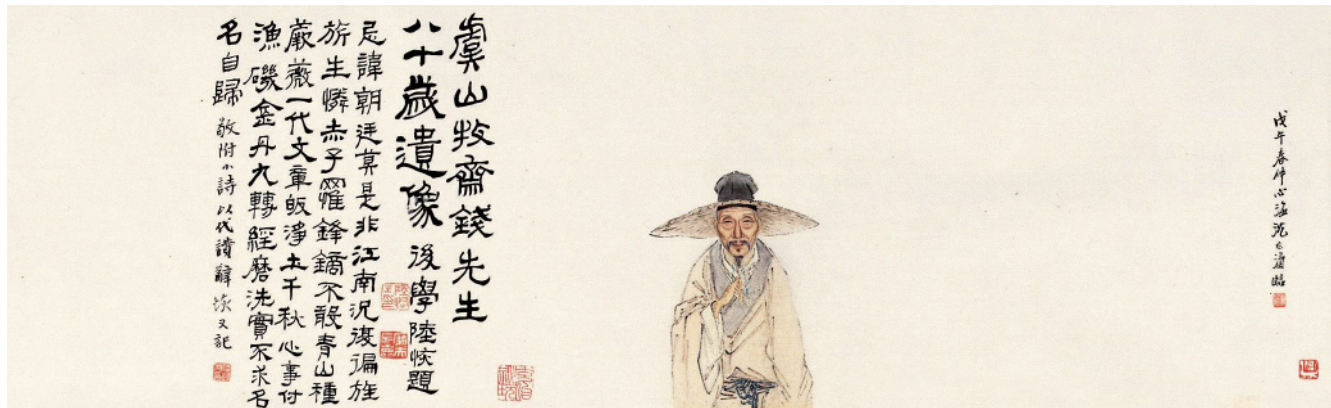 戊午春仲心臨
虞山牧齋錢先生
八十歲遺像 後學陸恢題
忌諱朝廷莫是非江南況復遍旌
旂生憐赤子罹鋒鏑不敢青山種
蕨薇一代文章皈淨土千秋心事付
漁磯金丹九轉經磨洗實不求名
名自歸 敬附小詩以代讚辭恢又記